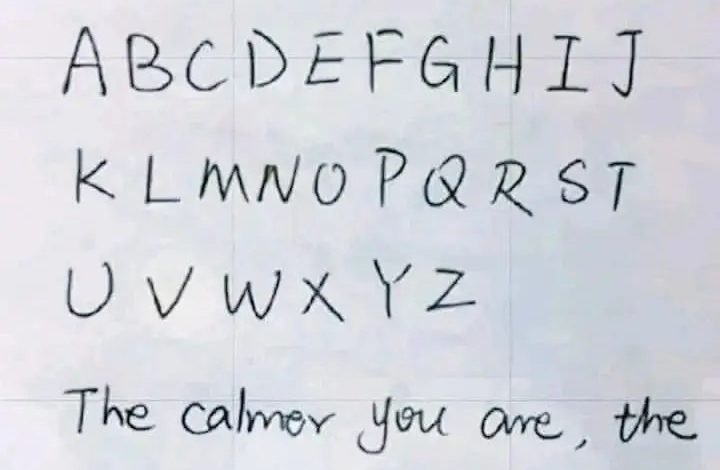 A B C D E F G H I J
K L M N O P Q R S T
U V W X Y Z
The calmer you are, the